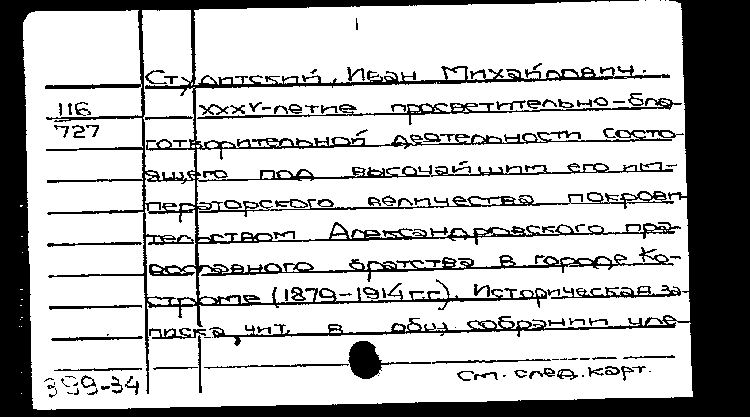 Студитский, Иван Михайлович.
116
727
XXXV-летие просветительно-бла-
готворительной деятельности состо-
ящего под высочайшим его им-
ператорского величества покрови-
тельством Александровского пра-
вославного братства в городе Ко-
строме (1879-1914 г.г.). Историческая за-
писка, чит. в общ. собрании чле-
399-34
См. след. карт.